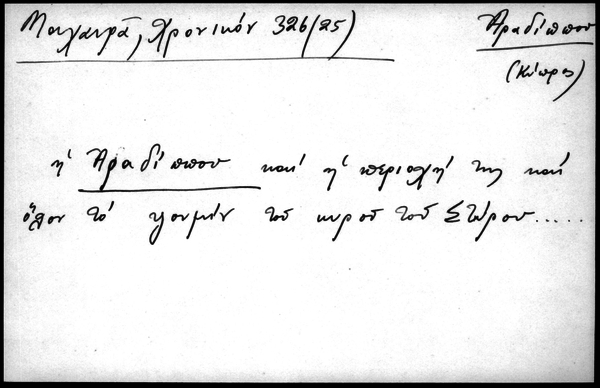 Μαχαιρᾶ, Χρονικόν 326 (25)
Ἀραδίππου
(Κύπρος)
ἡ Ἀραδίππου καί ἡ περιοχή της καί
ὅλον τό κουμούν τοῦ κυροῦ τοῦ Στύρου.....